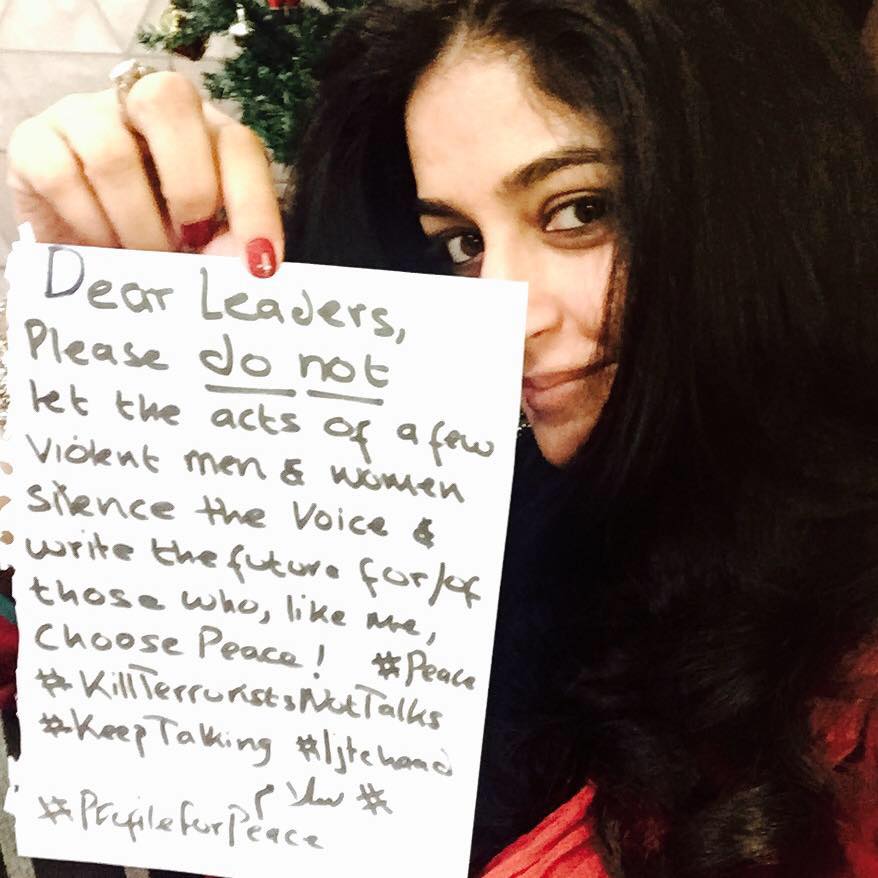 Dear Leaders,
Please do not
let the acts of a few
violent men & women
silence the voice &
write the future for/of
those who, like me,
Choose Peace! #Peace
#KillTerroristsNotTalks
#KeepTalking #Ijtehaad
#سلام
#ProfileforPeace